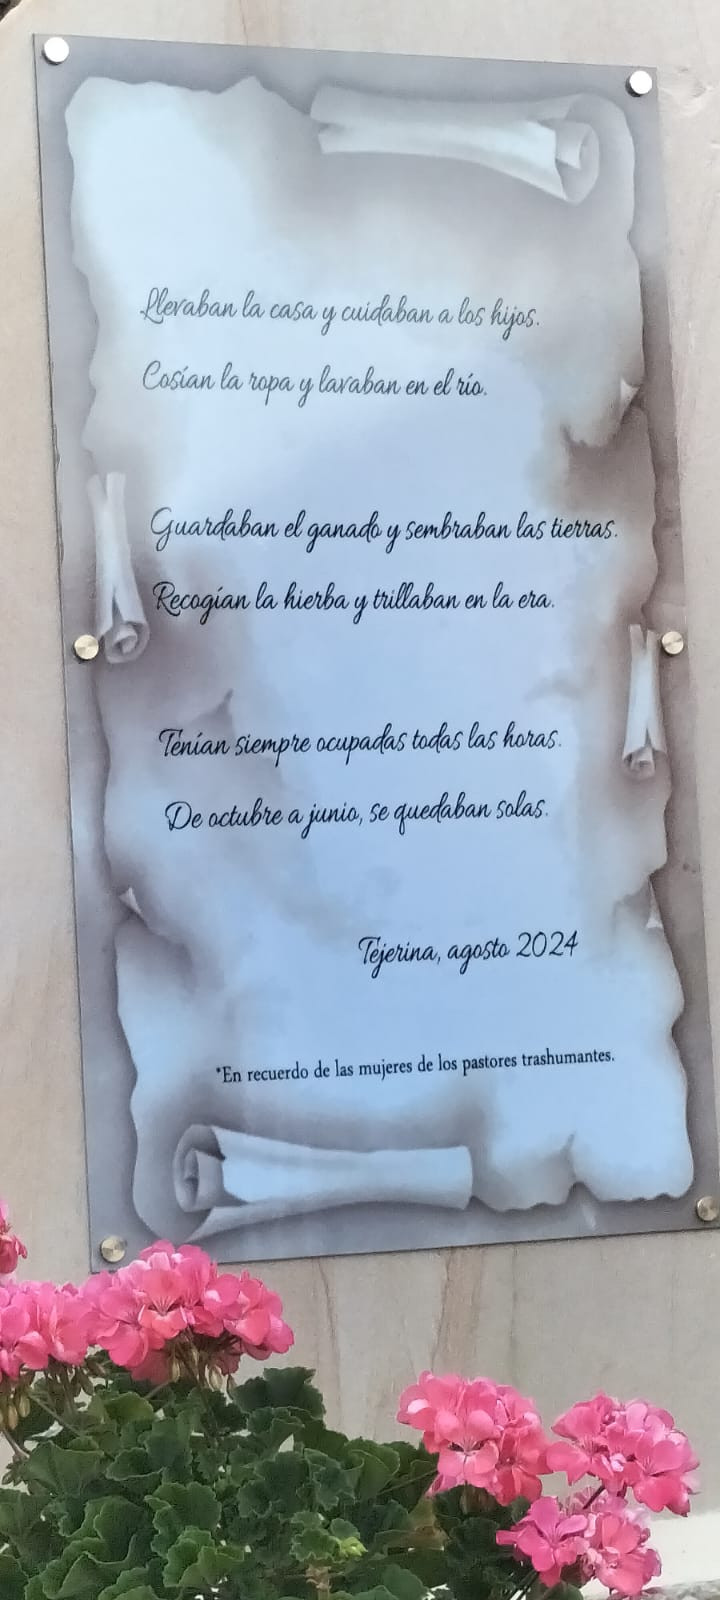 Llevaban la casa y cuidaban a los hijos.
Cosían la ropa y lavaban en el río.
Guardaban el ganado y sembraban las tierras.
Recogían la hierba y trillaban en la era.
Tenían siempre ocupadas todas las horas.
De octubre a junio, se quedaban solas.
Tejerina, agosto 2024
*En recuerdo de las mujeres de los pastores trashumantes.